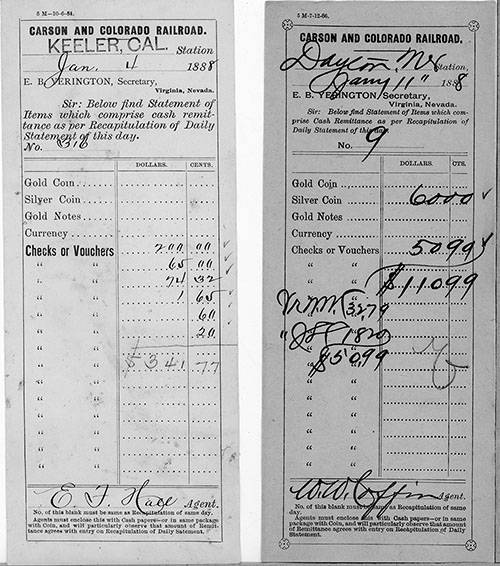 5 M—10-6-84.
CARSON AND COLORADO RAILROAD.
KEELER, CAL. Station
Jan. 4 1888
E. B. YERINGTON, Secretary,
Virginia, Nevada.
Sir: Below find Statement of
Items which comprise cash remit-
tance as per Recapitulation of Daily
Statement of this day.
No. 316
DOLLARS. CENTS.
Gold Coin
Silver Coin
Gold Notes
Currency
Checks or Vouchers 200 00
" " 65 00
" " 74 32
" " 1 65
" " 60
" " 20
" " $341 77
" "
" "
" "
" "
" "
" "
E. F. Hall Agent.
No. of this blank must be same as Recapitulation of same
day.
Agents must enclose this with Cash papers—or in same package
with Coin, and will particularly observe that amount of
Remittance agrees with entry on Recapitulation of Daily Satement.
5 M-7-12-86.
CARSON AND COLORADO RAILROAD.
Dayton Station,
Jany 11" 1888
E. B. YERINGTON, Secretary,
Virginia, Nevada.
Sir: Below find Statement of Items which com-
prise Cash Remittance as per Recapitulation of
Daily Statement of this day.
No. 9
DOLLARS. CTS.
Gold Coin
Silver Coin 60 00
Gold Notes
Currency
Checks or Vouchers 50 99
" " $110 99
32 79
18 20
$50.99
" "
" "
" "
" "
" "
" "
" "
W. W. Coffin Agent.
No. of this blank must be same as Recapitulation of same day.
Agents must enclose this with Cash papers—or in same package
with Coin, and will particularly observe that amount of
Remittance agrees with entry on Recapitulation of Daily
Statement.